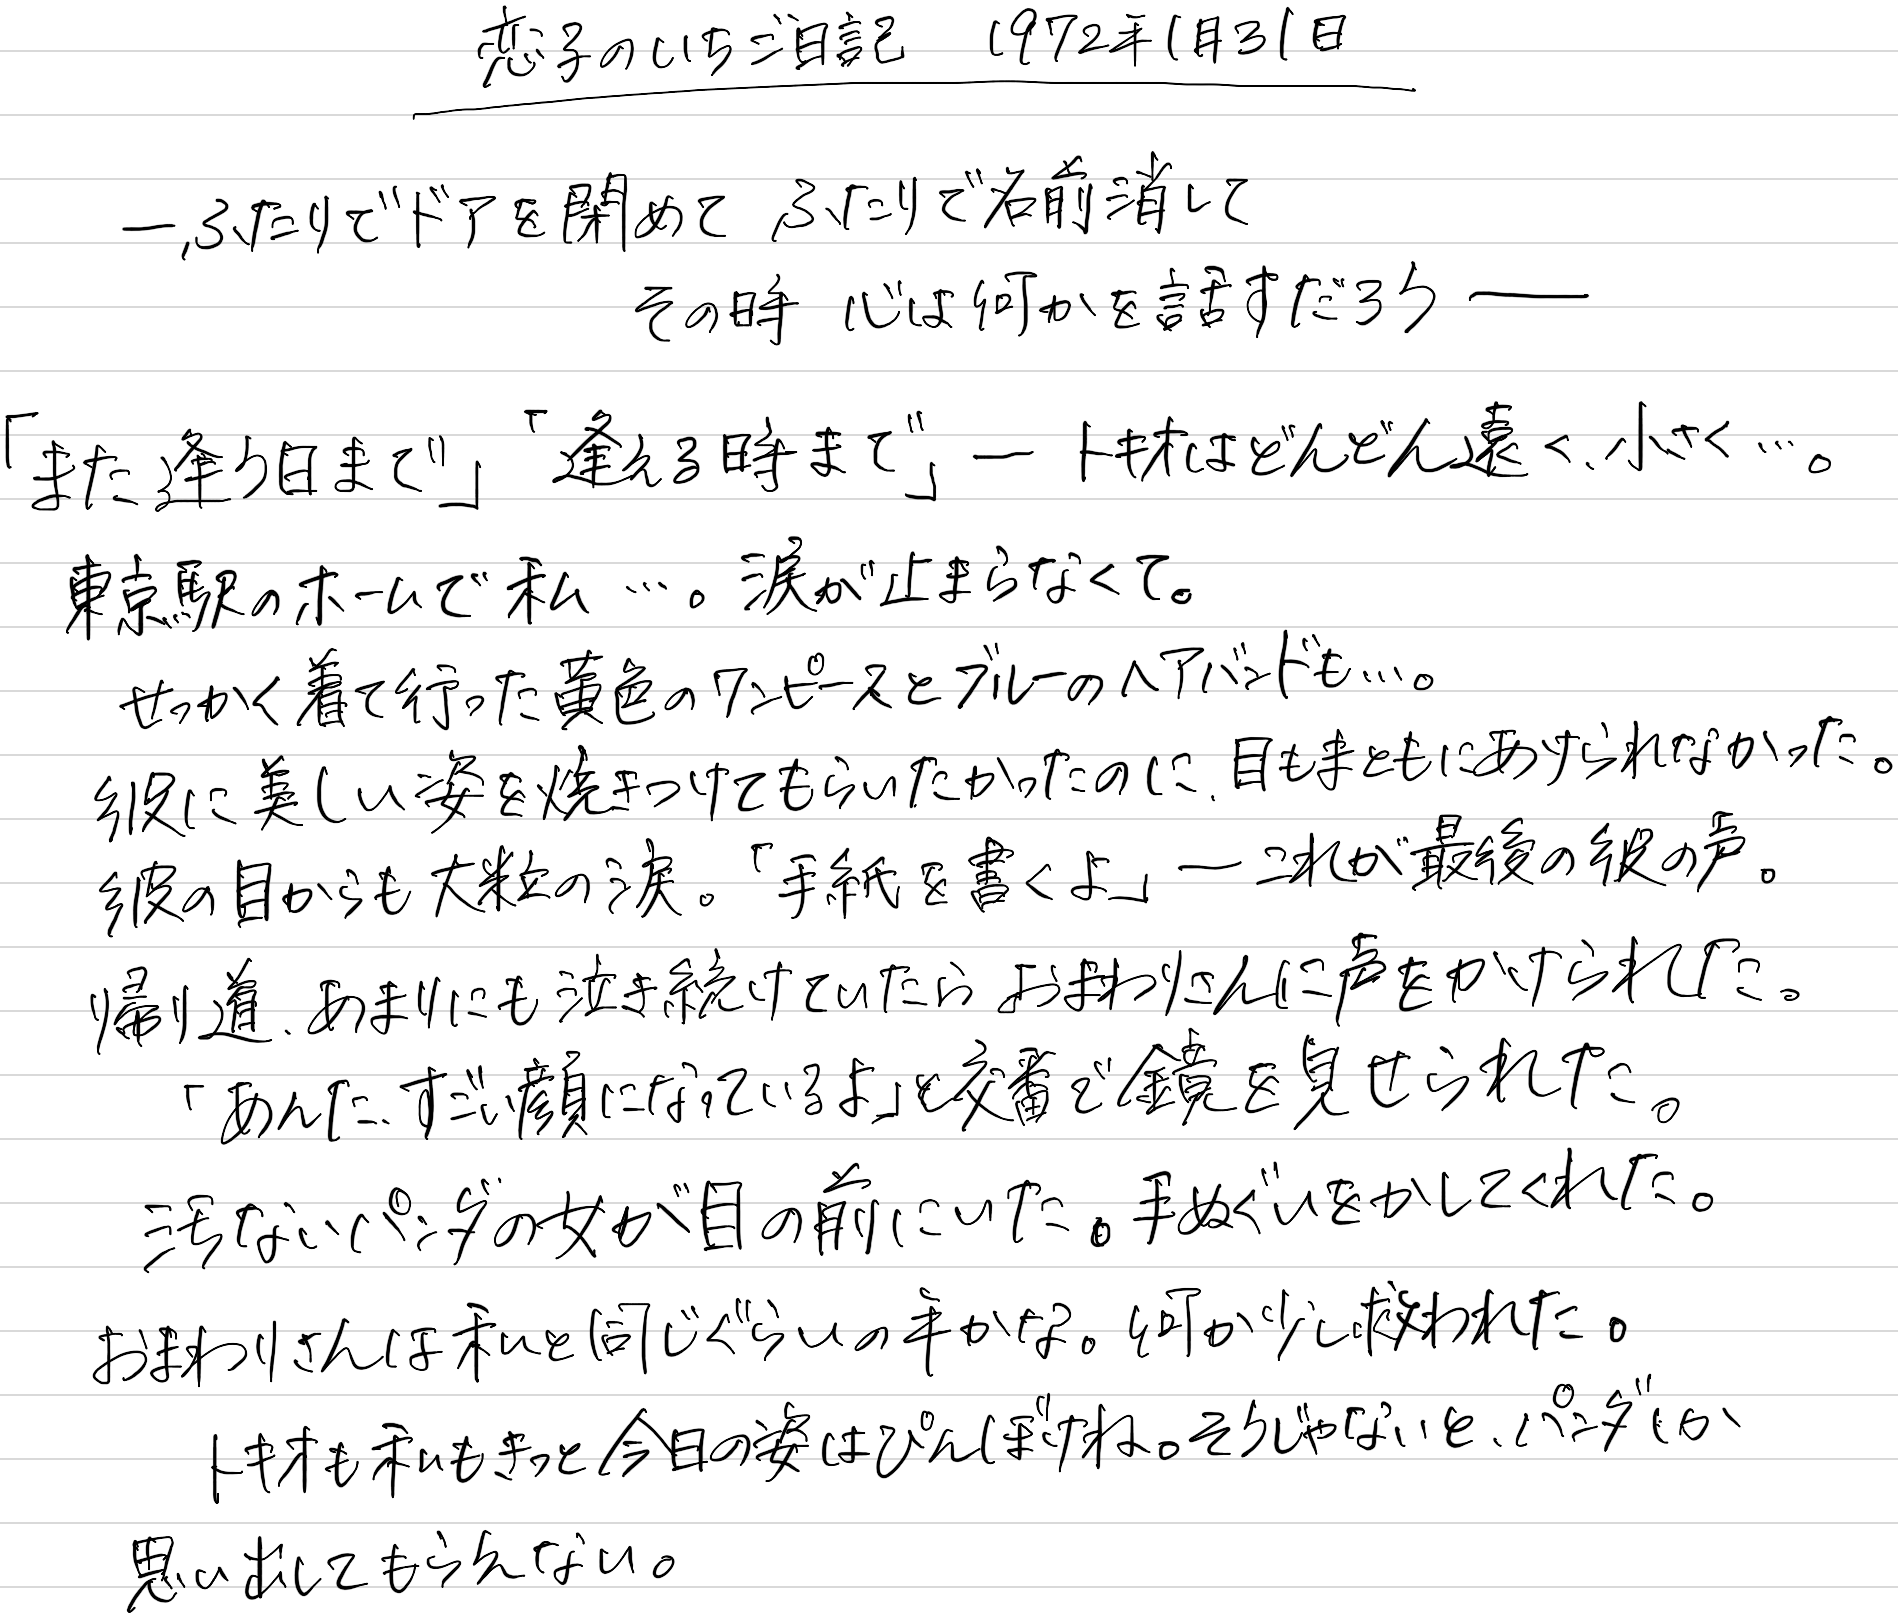 恋子のいちご日記　1972年1月31日
―ふたりでドアを閉めて ふたりで名前消して
その時 心は何かを話すだろう――
「また逢う日まで」「逢える時まで」― トキオはどんどん遠く、小さく…。
東京駅のホームで私…。涙が止まらなくて。
せっかく着て行った黄色のワンピースとブルーのヘアバンドも…。
彼に美しい姿を焼きつけてもらいたかったのに、目もまともにあけられなかった。
彼の目からも大粒の涙。「手紙を書くよ」―これが最後の彼の声。
帰り道、あまりにも泣き続けていたら おまわりさんに声をかけられた。
「あんた、すごい顔になっているよ」と交番で鏡を見せられた。
汚ないパンダの女が目の前にいた。手ぬぐいをかしてくれた。
おまわりさんは私と同じぐらいの年かな。何か少し救われた。
トキオも私もきっと今日の姿はぴんぼけね。そうじゃないと、パンダしか
思い出してもらえない。